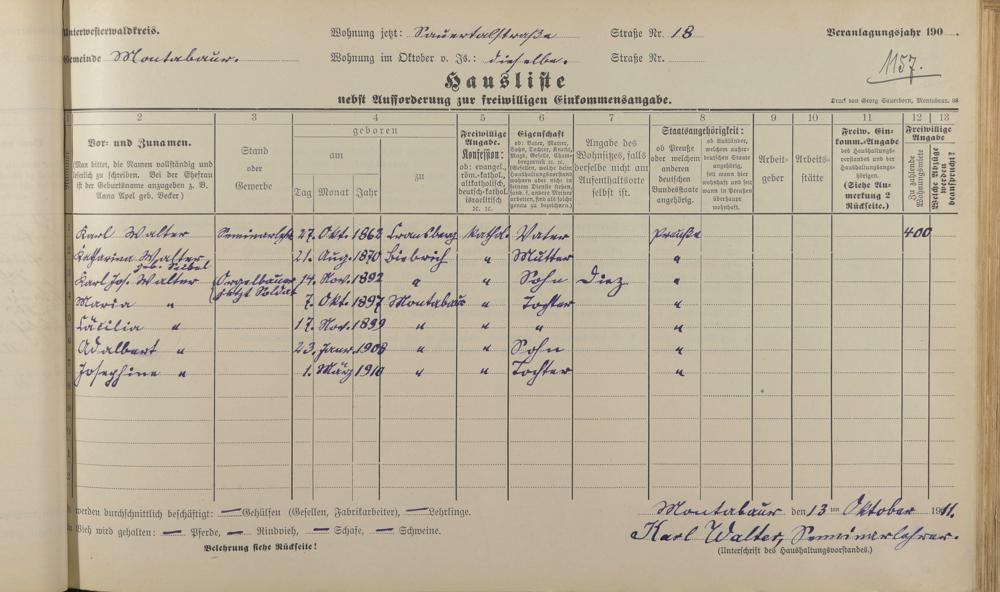 Unterwesterwaldkreis. Wohnung jetzt: Sauertalstraße Straße Nr. 18 Veranlagungsjahr 190 .
Gemeinde Montabaur. Wohnung im Oktober v. Js.: dieselbe. Straße Nr.
1157.
Hausliste
nebst Aufforderung zur freiwilligen Einkommensangabe.
Druck von Georg Sauerborn, Montabaur.
1 2 3 4 5 6 7 8 9 10 11 12 13
Vor- und Zunamen.
(Man bittet, die Namen vollständig und
leserlich zu schreiben. Bei der Ehefrau
ist der Geburtsname anzugeben z. B.
Anna Apel geb. Becker)
Stand
oder
Gewerbe
geboren
am zu
Tag Monat Jahr
Freiwillige
Angabe.
Konfession:
ob: evangel.,
röm.-kathol.,
altkatholisch,
deutsch-kathol.
israelitisch
ꝛc. ꝛc.
Eigenschaft
Angabe des
Wohnsitzes, falls
derselbe nicht am
Aufenthaltsorte
selbst ist.
Staatsangehörigkeit:
ob Preuße
oder welchem
anderen
deutschen
Bundesstaate
angehörig.
ob Ausländer,
welchem außer-
deutschen Staate
angehörig,
seit wann hier
wohnhaft und seit
wann in Preußen
überhaupt
wohnhaft.
Arbeit-
geber
Arbeits-
stätte
Freiw. Ein-
komm.-Angabe
des Haushaltungs-
vorstandes und der
Haushaltungsange-
hörigen.
(Siehe An-
merkung 2
Rückseite.)
Freiwillige
Angabe
Zu zahlende
Wohnungsmiete
Welche Abzüge
werden
beansprucht?
Karl Walter 27. Okt. 1862 kathol. Vater Preuße 400
Katharina Walter 21. Aug. 1870 Biebrich " Mutter "
geb. Seibel
Karl Jos. Walter Orgelbauer 14. Nov. 1892 " " Sohn Diez "
jetzt Soldat
Maria " 7. Okt. 1897 Montabaur " Tochter "
Cäcilia " 17. Nov. 1899 " " " "
Adalbert " 23. Januar 1908 " " Sohn "
Josephine " 1. März 1910 " " Tochter "
Es werden durchschnittlich beschäftigt: — Gehülfen (Gesellen, Fabrikarbeiter), — Lehrlinge.
An Vieh wird gehalten: — Pferde, — Rindvieh, — Schafe, — Schweine.
Belehrung siehe Rückseite!
Montabaur den 13 ten Oktober 1911.
Karl Walter, Seminarlehrer.
(Unterschrift des Haushaltungsvorstandes.)